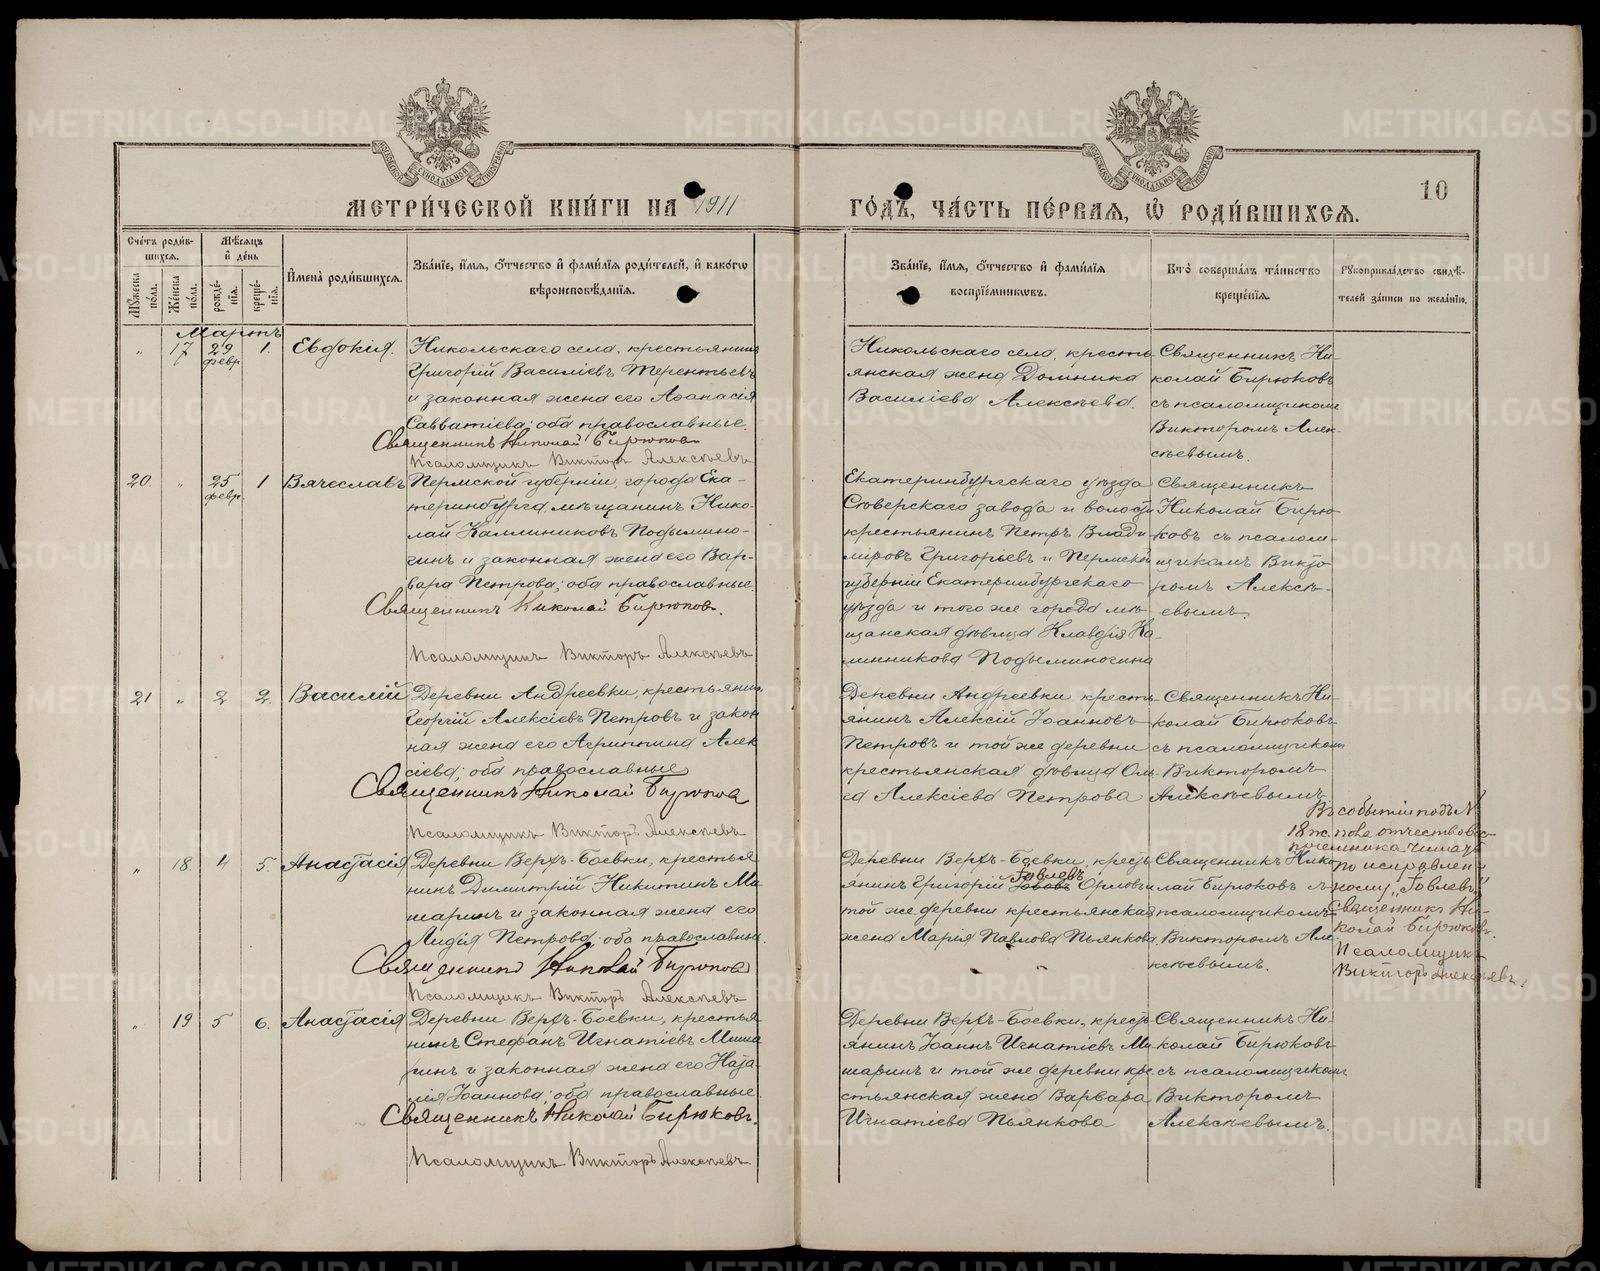 МЕТРИ́ЧЕСКОЙ КНИ́ГИ НА 1911
ГО́ДЪ, ЧА́СТЬ ПЕ́РВАЯ, Ѡ РОДИ́ВШИХСЯ.
10
Сче́тъ роди́в-
шихся.
Мꙋ́жеска по́ла.
Же́нска по́ла.
Мѣ́сяцъ
и҆ де́нь
рожде́-
нїя.
креще́-
нїя.
И҆мена̀ роди́вшихся.
Зва́нїе, и҆́мя, ѻ҆́тчество и҆ фами́лїя роди́телей, и҆ како́гѡ
вѣроисповѣ́данїя.
Зва́нїе, и҆́мя, ѻ҆́тчество и҆ фами́лїя
воспрїе́мниковъ.
Кто̀ соверша́лъ та́инство
креще́нїя.
Рꙋкоприкла́дство свидѣ́-
телей за́писи по жела́нїю.
Мартъ
„ 17 29 февр 1. Евдокія.
Никольскаго села, крестьянинъ
Григорій Василіевъ Терентьевъ
и законная жена его Аѳанасія
Савватіева; оба православные.
Священникъ Николай Бирюковъ
Псаломщикъ Викторъ Алексѣевъ
Никольскаго села, кресть
янская жена Домника
Василіева Алексѣева.
Священникъ Ни-
колай Бирюковъ
съ псаломщикомъ
Викторомъ Алек-
сѣевымъ.
20 „ 25 февр. 1 Вячеславъ
Пермской губерніи, города Ека-
теринбурга, мѣщанинъ Нико-
лай Каллиниковъ Подымино-
гинъ и законная жена его Вар-
вара Петрова; оба православные.
Священникъ Николай Бирюковъ.
Псаломщикъ Викторъ Алексѣевъ
Екатеринбургскаго уѣзда
Сѣверскаго завода и волости
крестьянинъ Петръ Влади
міровъ Григорьевъ и Пермской
губерніи Екатеринбургскаго
уѣзда и того же города мѣ-
щанская дѣвица Клавдія Ка-
линникова Подыминогина
Священникъ
Николай Бирю-
ковъ съ псалом-
щикомъ Викто
ромъ Алексѣ-
евымъ.
21 „ 2 2. Василій
Деревни Андреевки, крестьянинъ
Георгій Алексіевъ Петровъ и закон
ная жена его Агриппина Алек
сіева; оба православные
Священникъ Николай Бирюковъ
Псаломщикъ Викторъ Алексѣевъ
Деревни Андреевки кресть
янинъ Алексій Іоанновъ
Петровъ и той же деревни
крестьянская дѣвица Оль-
га Алексіева Петрова
Священникъ Ни-
колай Бирюковъ
съ псаломщикомъ
Викторомъ
Алексѣевымъ
„ 18. 4 5. Анастасія
Деревни Верхъ-Боевки, крестья
нинъ Димитрій Никитинъ Ми
шаринъ и законная жена его
Лидія Петрова оба православные.
Священникъ Николай Бирюковъ
Псаломщикъ Викторъ Алексѣевъ
Деревни Верхъ-Боевки, кресть
янинъ Григорій Іовлевъ Орловъ и
той же деревни крестьянская
жена Марія Павлова Пьянкова.
Священникъ Нико
лай Бирюковъ съ
псаломщикомъ
Викторомъ Але-
ксѣевымъ.
Въ событіи подъ №
18 ж. пола отчество вос-
пріемника читать
по исправлен-
ному „Іовлевъ“
Священникъ Ни-
колай Бирюковъ.
Псаломщикъ
Викторъ Алексѣевъ.
„ 19 5 6. Анастасія
Деревни Верхъ-Боевки, крестья-
нинъ Стефанъ Игнатіевъ Миша
ринъ и законная жена его Ната-
лія Іоаннова; оба православные.
Священникъ Николай Бирюковъ.
Псаломщикъ Викторъ Алексѣевъ
Деревни Верхъ-Боевки, кресть
янинъ Іоаннъ Игнатіевъ Ми
шаринъ и той же деревни кре-
стьянская жена Варвара
Игнатіева Пьянкова
Священникъ Ни-
колай Бирюковъ
съ псаломщикомъ
Викторомъ
Алексѣевымъ.
METRIKI.GASO-URAL.RU